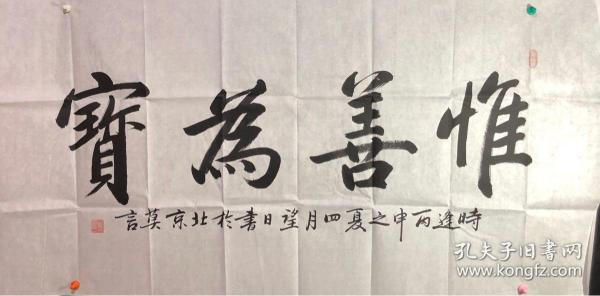 惟善為寶
時逢丙申之夏四月望日書於北京莫言
孔夫子旧书网
www.kongfz.com